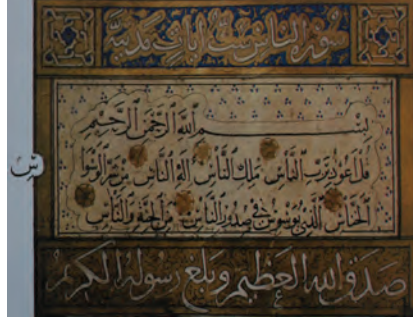 سورة الناس ست ايات مدنية
بِسْمِ اللَّهِ الرَّحْمَنِ الرَّحِيمِ
قُلْ أَعُوذُ بِرَبِّ النَّاسِ مَلِكِ النَّاسِ إِلَهِ النَّاسِ مِنْ شَرِّ الْوَسْوَاسِ
الْخَنَّاسِ الَّذِي يُوَسْوِسُ فِي صُدُورِ النَّاسِ مِنَ الْجِنَّةِ وَالنَّاسِ
صدق الله العظيم وبلغ رسوله الكريم